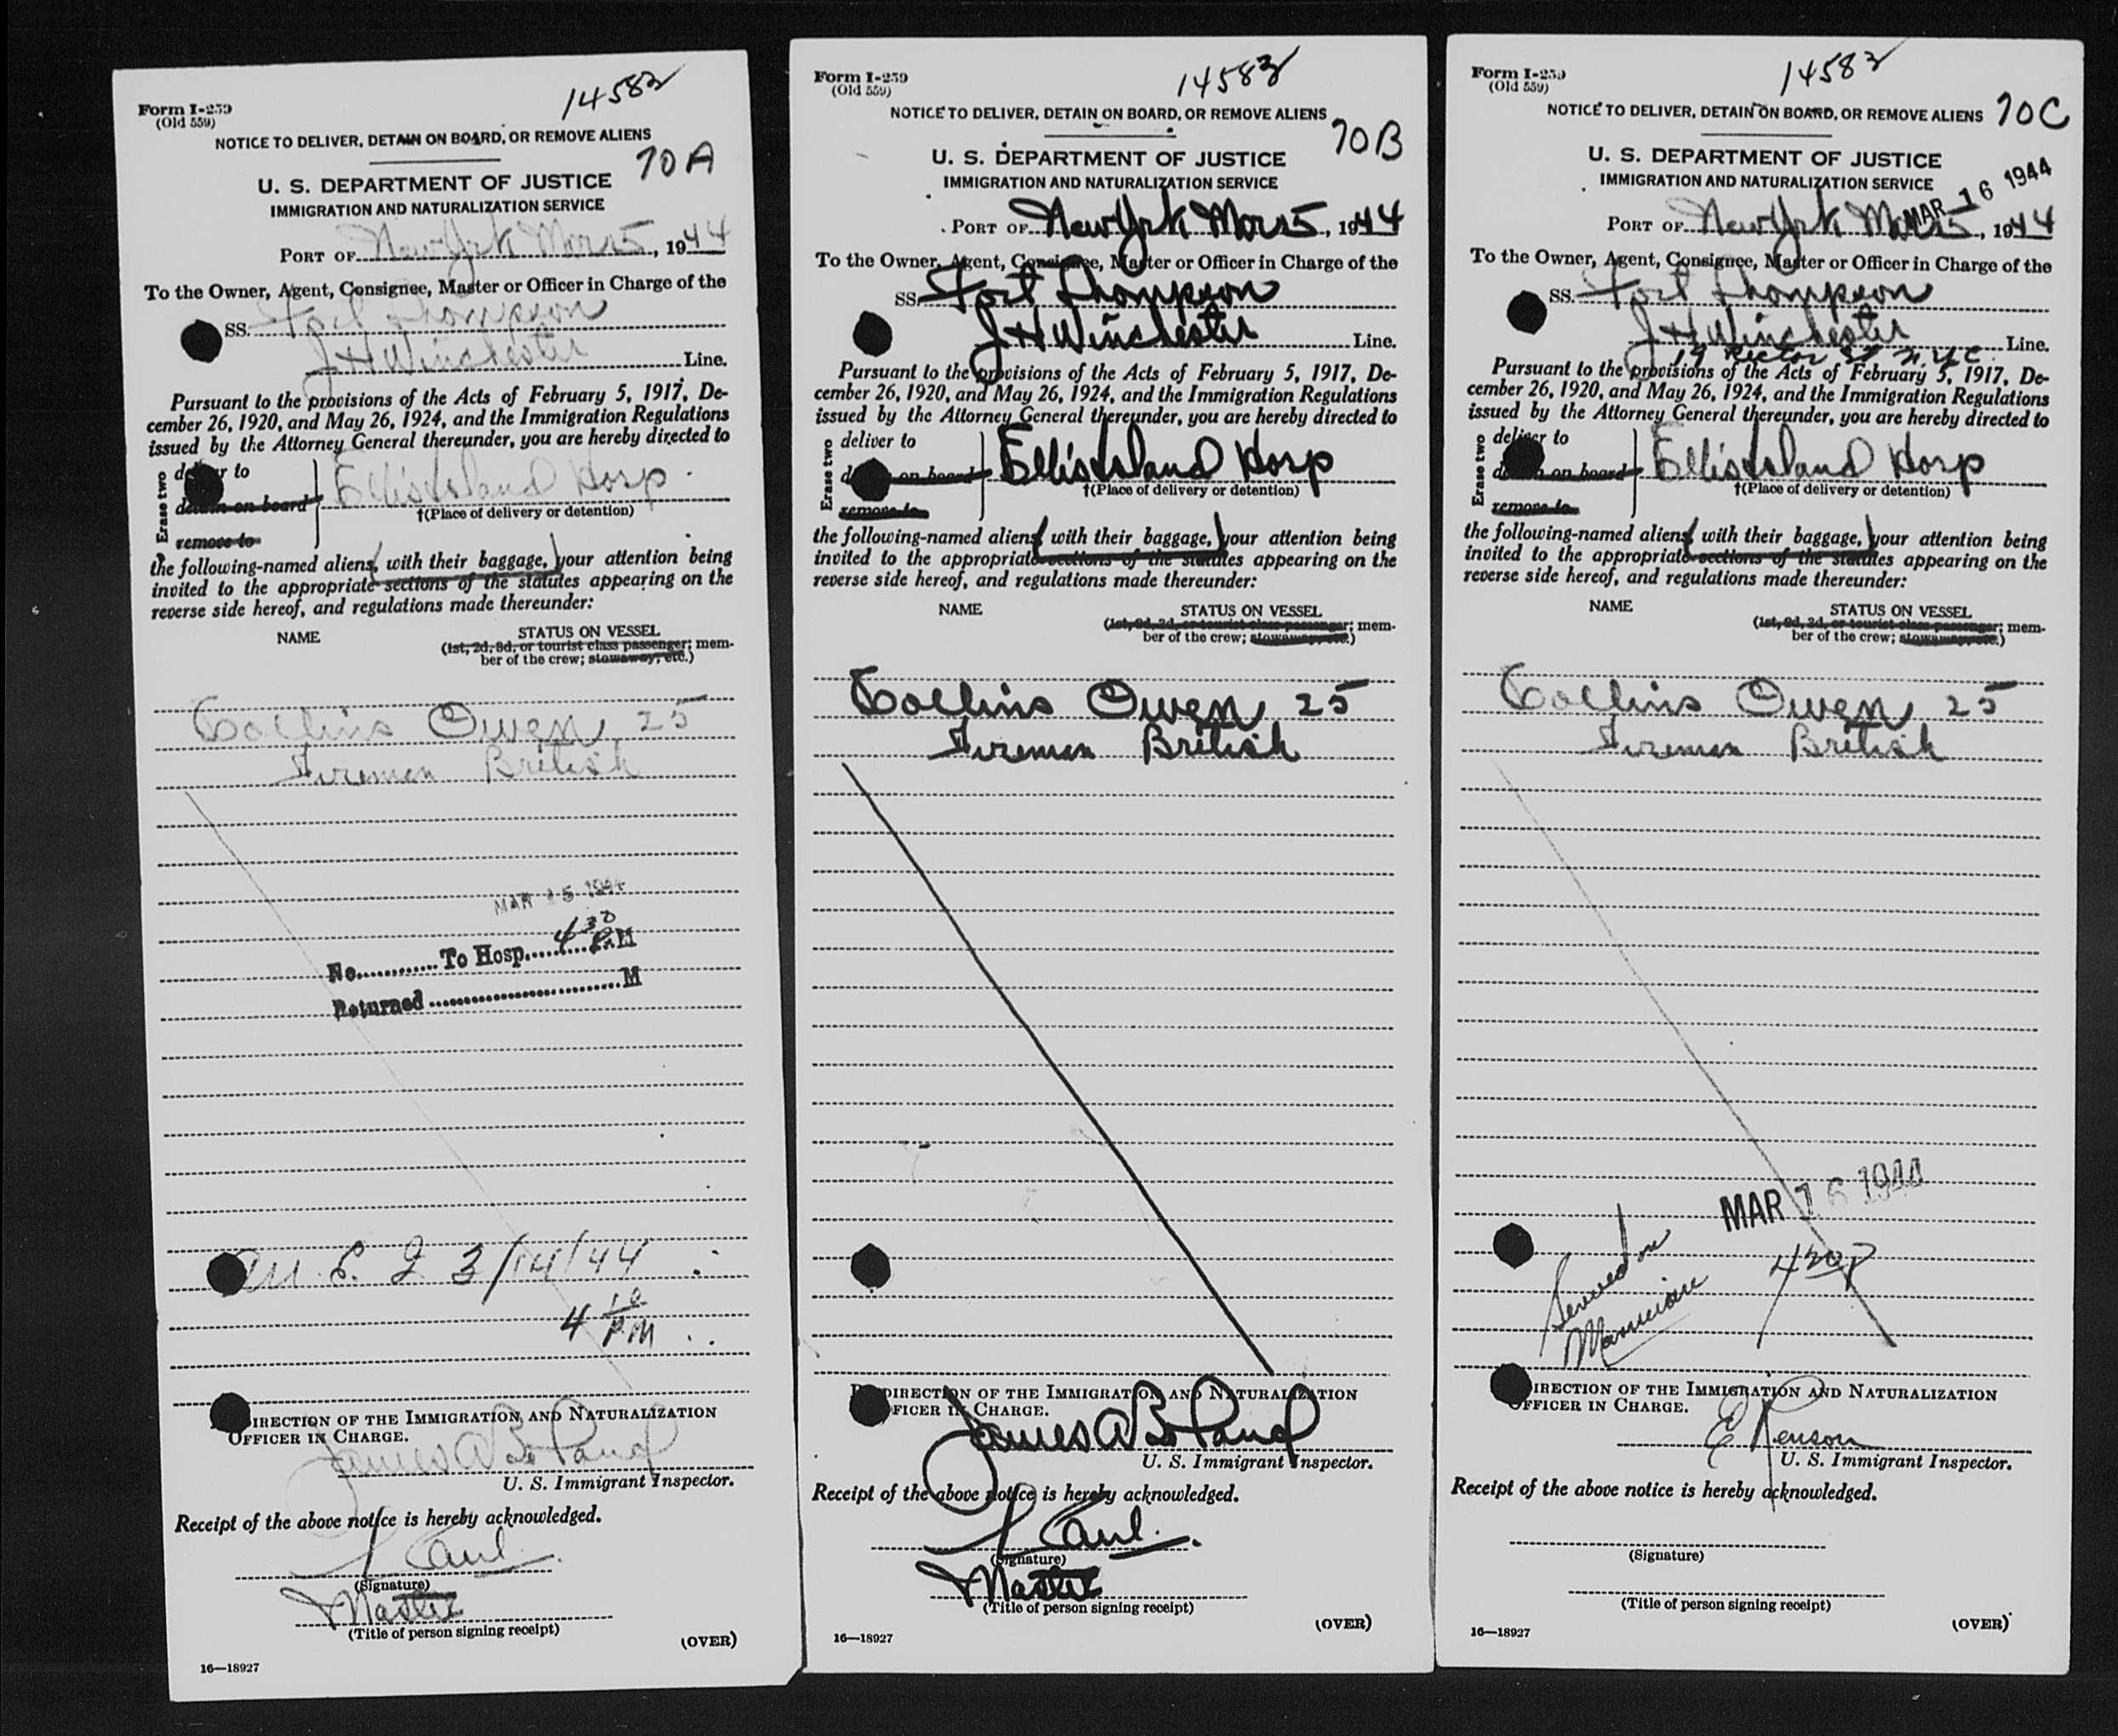 Form I-259
(Old 559)
14583
NOTICE TO DELIVER, DETAIN ON BOARD, OR REMOVE ALIENS
70A
U. S. DEPARTMENT OF JUSTICE
IMMIGRATION AND NATURALIZATION SERVICE
PORT OF New York Mar 15, 1944
To the Owner, Agent, Consignee, Master or Officer in Charge of the
SS. Fort Thompson
J H Winchester Line.
Pursuant to the provisions of the Acts of February 5, 1917, De-
cember 26, 1920, and May 26, 1924, and the Immigration Regulations
issued by the Attorney General thereunder, you are hereby directed to
Erase two
deliver to
detain on board
remove to
Ellis Island Hosp.
†(Place of delivery or detention)
the following-named aliens, with their baggage, your attention being
invited to the appropriate sections of the statutes appearing on the
reverse side hereof, and regulations made thereunder:
NAME
STATUS ON VESSEL
(1st, 2d, 3d, or tourist class passenger; mem-
ber of the crew; stowaway, etc.)
Collins Owen 25
Fireman British
MAR 15 1944
No. To Hosp. 4 30 P.M
Returned M
3/14/44
4 10 PM
DIRECTION OF THE IMMIGRATION AND NATURALIZATION
OFFICER IN CHARGE.
James A Boland
U. S. Immigrant Inspector.
Receipt of the above notice is hereby acknowledged.
(Signature)
Master
(Title of person signing receipt)
(OVER)
16—18927
Form I-259
(Old 559)
14583
NOTICE TO DELIVER, DETAIN ON BOARD, OR REMOVE ALIENS
70B
U. S. DEPARTMENT OF JUSTICE
IMMIGRATION AND NATURALIZATION SERVICE
PORT OF New York Mar 15, 1944
To the Owner, Agent, Consignee, Master or Officer in Charge of the
SS. Fort Thompson
J H Winchester Line.
Pursuant to the provisions of the Acts of February 5, 1917, De-
cember 26, 1920, and May 26, 1924, and the Immigration Regulations
issued by the Attorney General thereunder, you are hereby directed to
Erase two
deliver to
detain on board
remove to
Ellis Island Hosp
†(Place of delivery or detention)
the following-named aliens, with their baggage, your attention being
invited to the appropriate sections of the statutes appearing on the
reverse side hereof, and regulations made thereunder:
NAME
STATUS ON VESSEL
(1st, 2d, 3d, or tourist class passenger; mem-
ber of the crew; stowaway, etc.)
Collins Owen 25
Fireman British
DIRECTION OF THE IMMIGRATION AND NATURALIZATION
OFFICER IN CHARGE.
James A Boland
U. S. Immigrant Inspector.
Receipt of the above notice is hereby acknowledged.
(Signature)
Master
(Title of person signing receipt)
(OVER)
16—18927
Form I-259
(Old 559)
14583
NOTICE TO DELIVER, DETAIN ON BOARD, OR REMOVE ALIENS
70C
U. S. DEPARTMENT OF JUSTICE
IMMIGRATION AND NATURALIZATION SERVICE
MAR 16 1944
PORT OF New York Mar 15, 1944
To the Owner, Agent, Consignee, Master or Officer in Charge of the
SS. Fort Thompson
J H Winchester Line.
19 Rector St N.Y.C.
Pursuant to the provisions of the Acts of February 5, 1917, De-
cember 26, 1920, and May 26, 1924, and the Immigration Regulations
issued by the Attorney General thereunder, you are hereby directed to
Erase two
deliver to
detain on board
remove to
Ellis Island Hosp
†(Place of delivery or detention)
the following-named aliens, with their baggage, your attention being
invited to the appropriate sections of the statutes appearing on the
reverse side hereof, and regulations made thereunder:
NAME
STATUS ON VESSEL
(1st, 2d, 3d, or tourist class passenger; mem-
ber of the crew; stowaway, etc.)
Collins Owen 25
Fireman British
MAR 16 1944
Served on
430P
DIRECTION OF THE IMMIGRATION AND NATURALIZATION
OFFICER IN CHARGE.
U. S. Immigrant Inspector.
Receipt of the above notice is hereby acknowledged.
(Signature)
(Title of person signing receipt)
(OVER)
16—18927